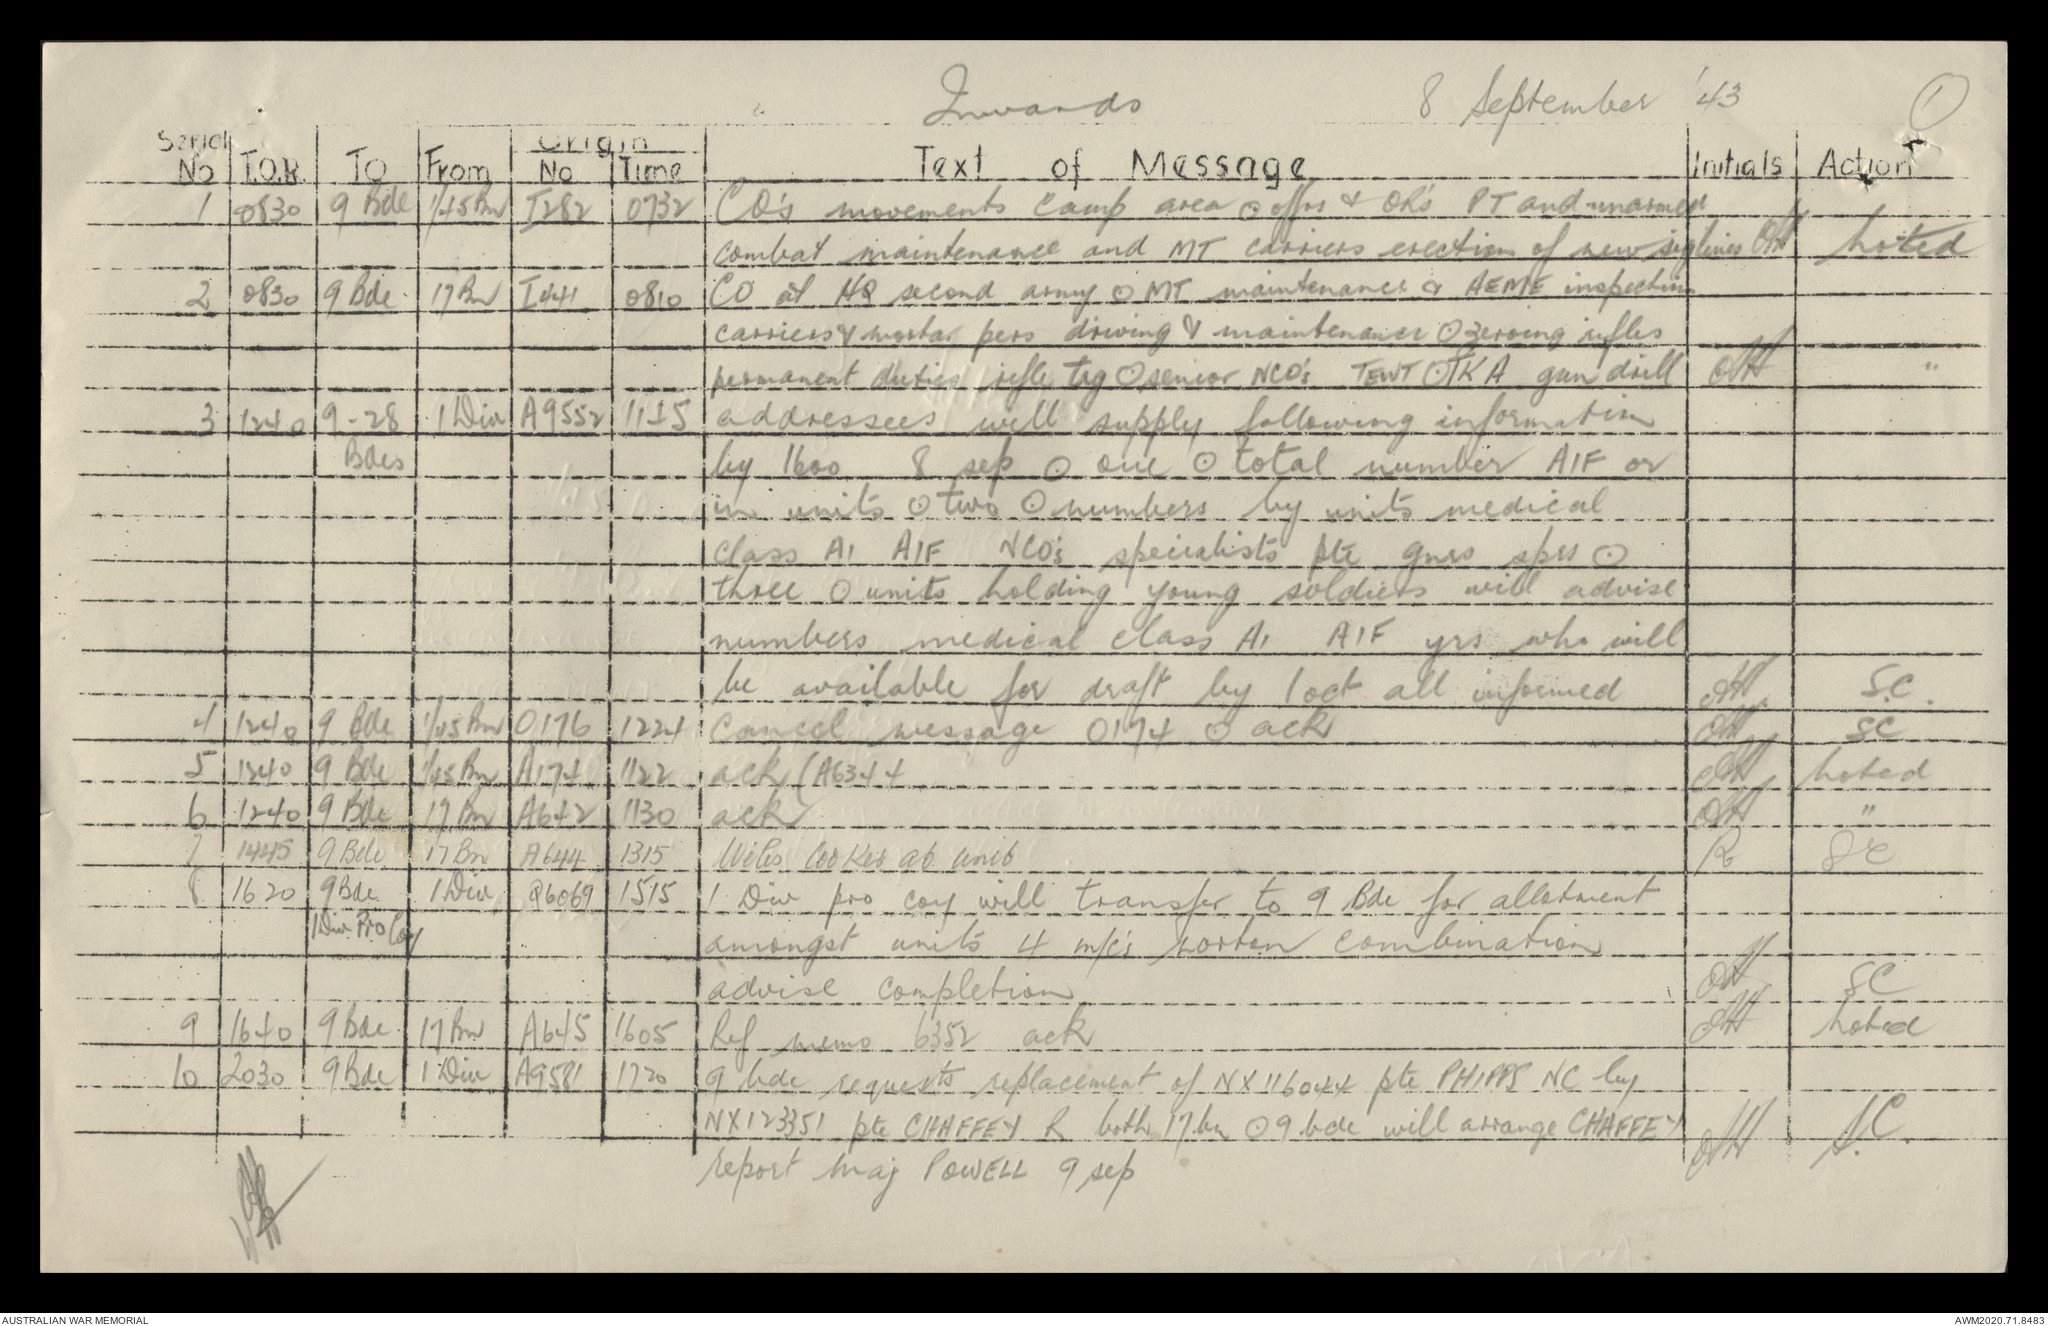 Inwards 8 September '43 1
Serial No T.O.R. TO From Origin No Time Text of Message Initials Action
1 0830 9 Bde 1/45 Bn I282 0732 CO's movements camp area ⊙ offrs & OR's PT and unarmed
combat maintenance and MT carriers erection of new sig lines OH noted
2 0830 9 Bde 17 Bn I441 0810 CO at HQ second army ⊙ MT maintenance & AEME inspection
carriers & mortar pers driving & maintenance ⊙ zeroing rifles
permanent duties rifle trg ⊙ senior NCO's TEWT ⊙ TKA gun drill OH "
3 1240 9-28 1 Div A9552 1115 addressees will supply following information
Bdes by 1600 8 sep ⊙ one ⊙ total number AIF or
in units ⊙ two ⊙ numbers by units medical
class A1 AIF NCO's specialists pte gnrs sprs ⊙
three ⊙ units holding young soldiers will advise
numbers medical class A1 AIF yrs who will
be available for draft by 1 oct all informed OH S.C.
4 1240 9 Bde 1/45 Bn O176 1224 cancel message O174 ⊙ ack OH SC
5 1240 9 Bde 1/45 Bn A174 1122 ack (A6344 OH noted
6 1240 9 Bde 17 Bn A642 1130 ack OH "
7 1445 9 Bde 17 Bn A644 1315 Wiles Cooker at unit R SC
8 1620 9 Bde 1 Div Q6069 1515 1 Div pro coy will transfer to 9 Bde for allotment
1 Div Pro Coy amongst units 4 m/c's norton combination
advise completion OH SC
9 1640 9 Bde 17 Bn A645 1605 Ref memo 6352 ack OH noted
10 2030 9 Bde 1 Div A9581 1720 9 bde requests replacement of NX116044 pte PHIPPS NC by
NX123351 pte CHAFFEY R both 17 bn ⊙ 9 bde will arrange CHAFFEY OH S.C.
report maj POWELL 9 sep
AUSTRALIAN WAR MEMORIAL AWM2020.71.8483